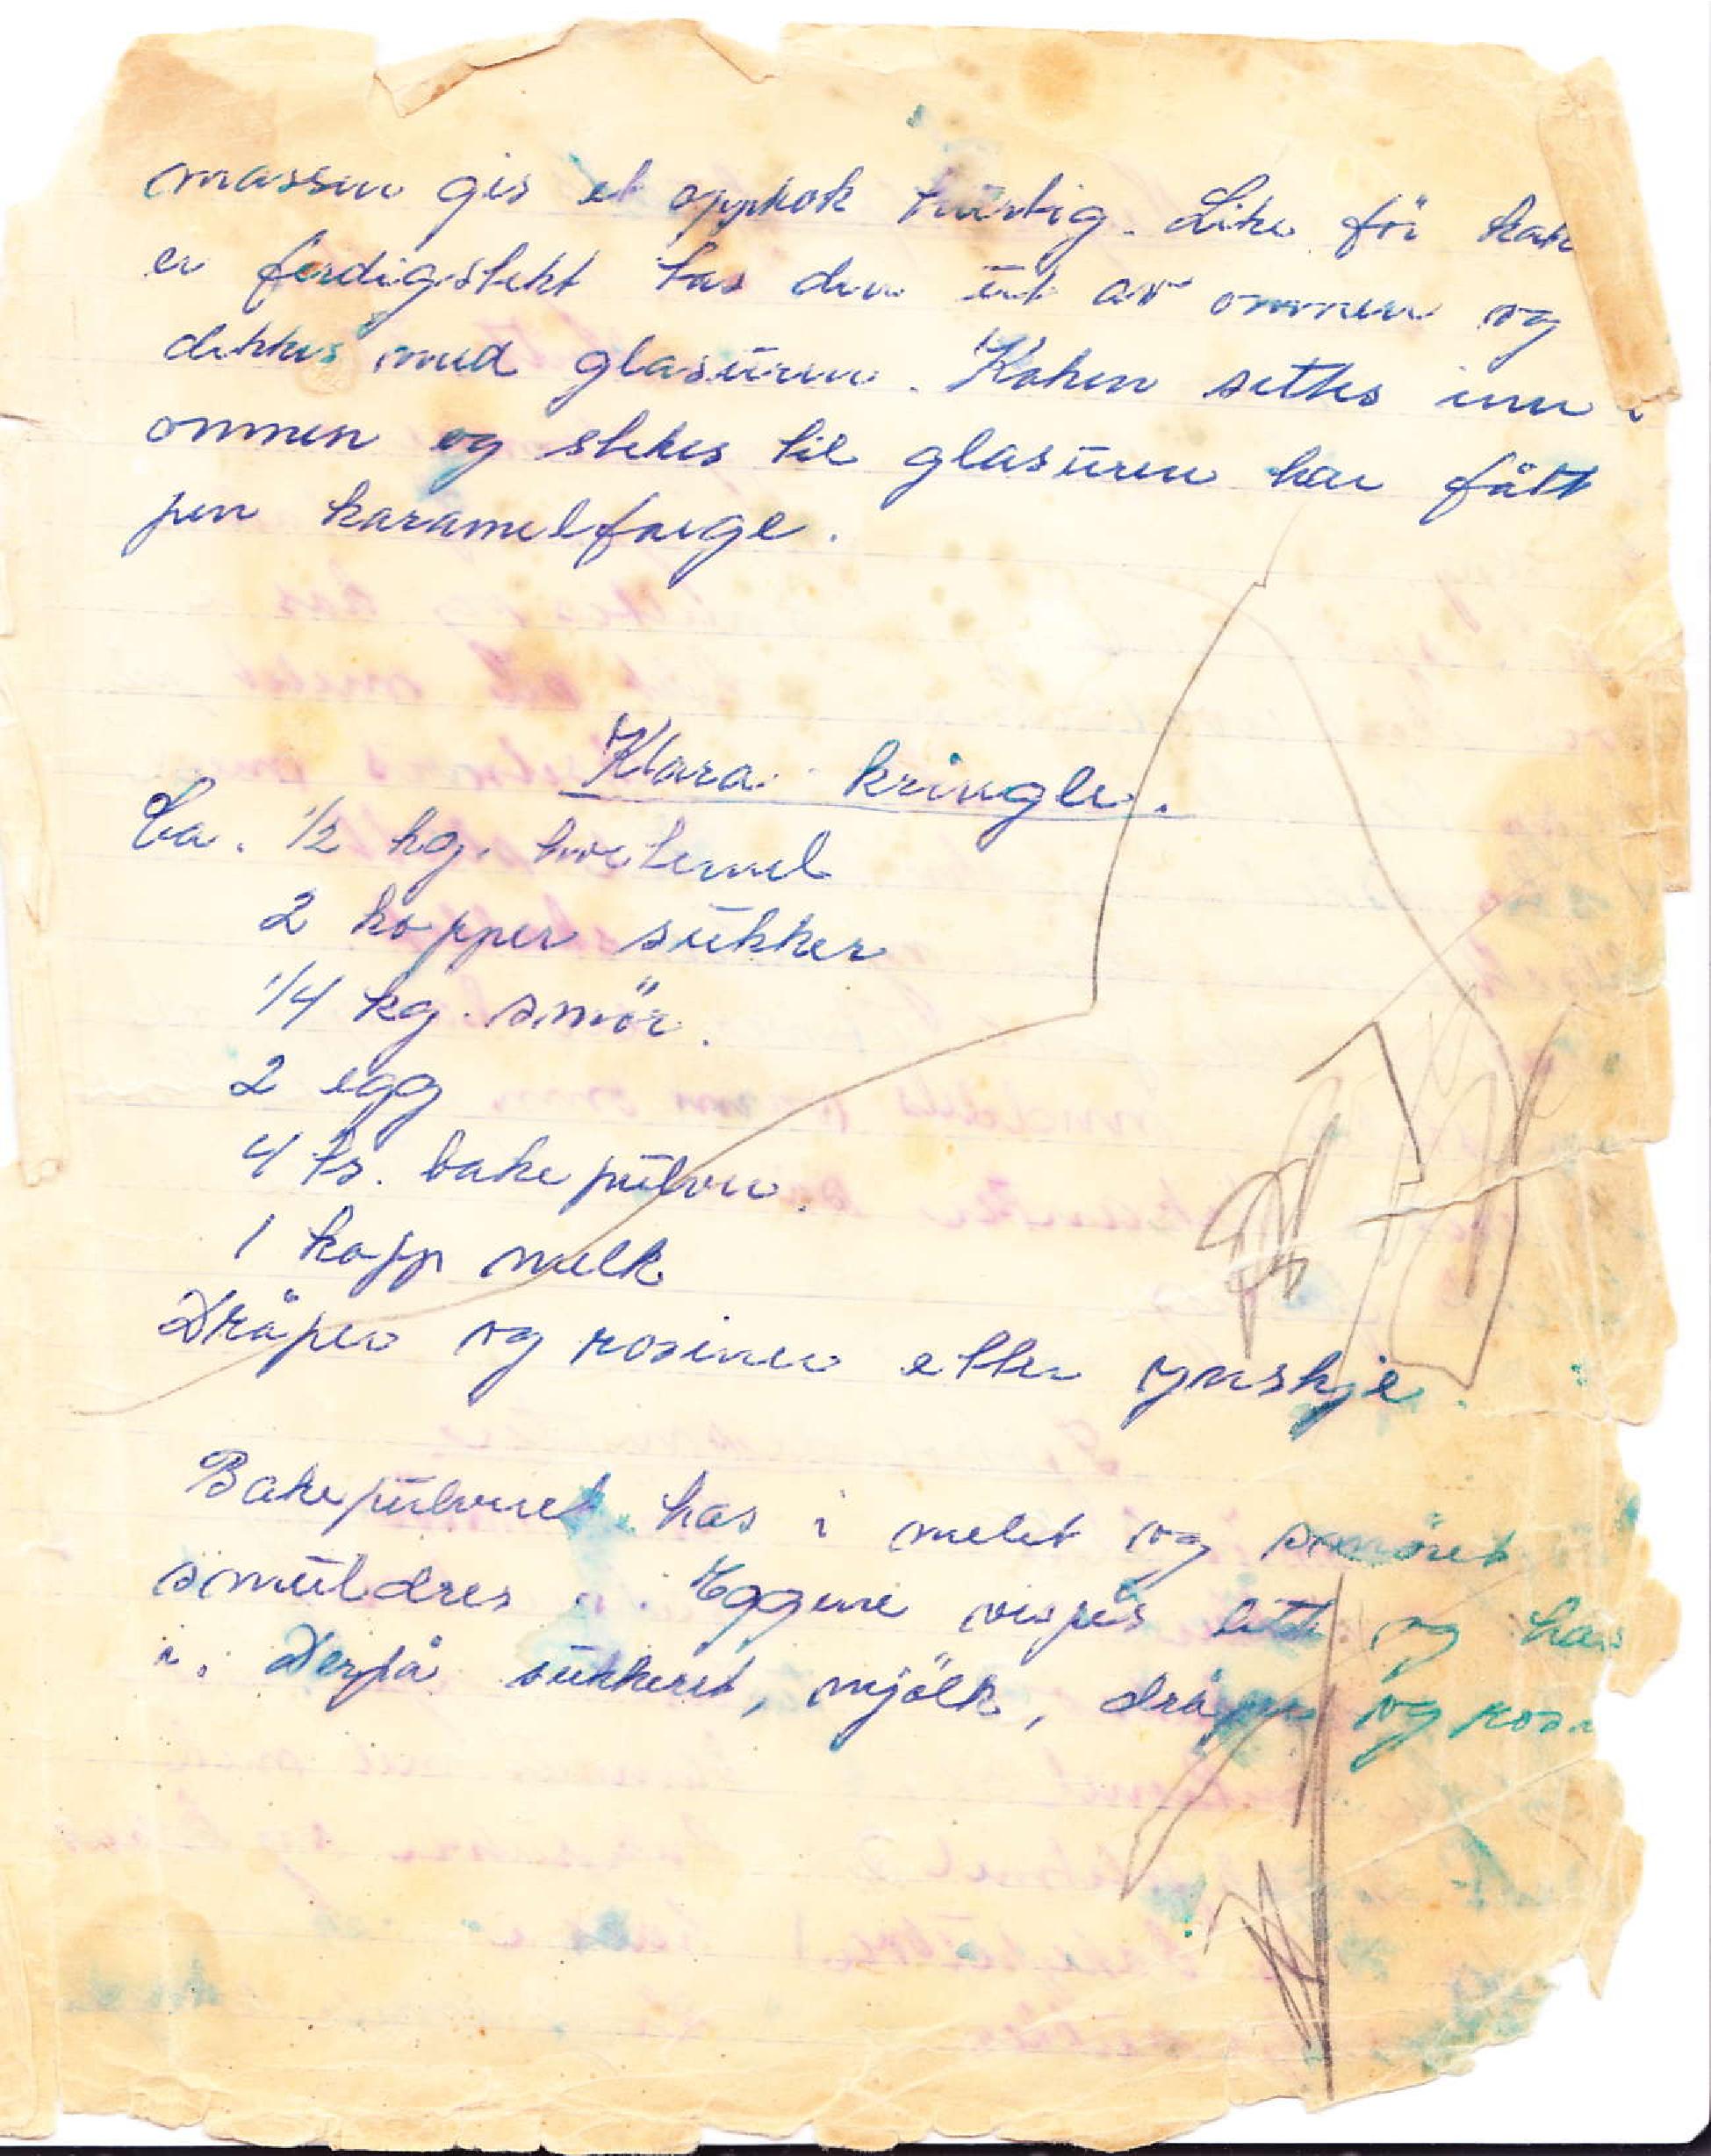 massen gis et oppkok hurtig. Like för kak
er ferdigstekt tas den ut av ommen og
dekkes med glasuren. Kaken settes inn i
ommen og stekes til glasuren har fått
pen karamelfarge.
Klara kringle.
Ca. 1/2 kg. hvetemel
2 kopper sukker
1/4 kg. smör.
2 egg
4 ts. bakepulver.
1 kopp melk
Dråper og rosiner etter ynskje.
Bakepulveret has i melet og smöret
smuldres i. Eggene vispes lett og has
i. Derpå sukkeret, mjölk, dråper og rosi